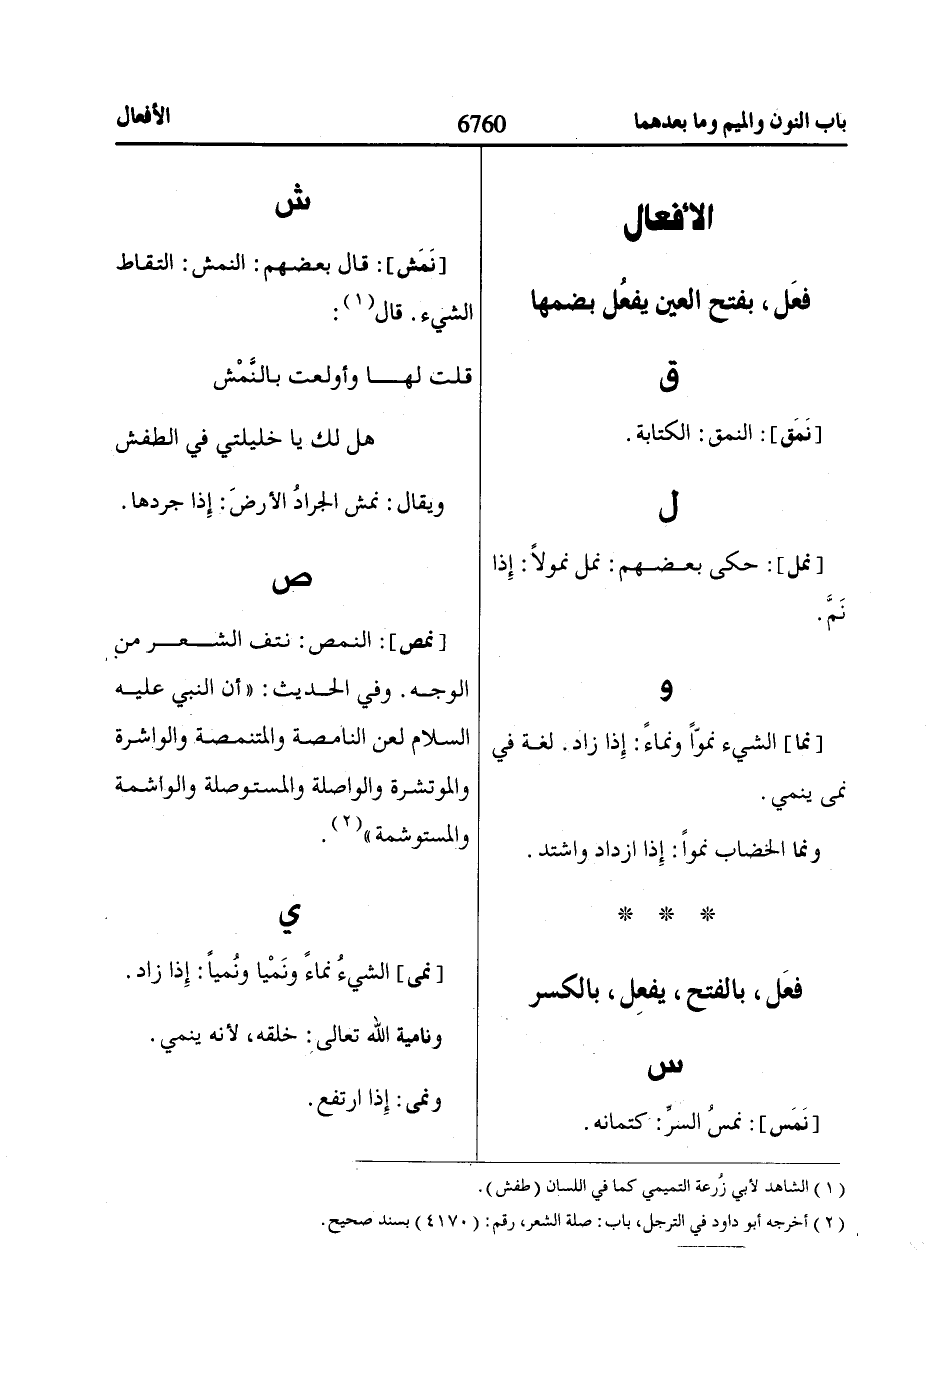 باب النون والميم وما بعدهما 6760 الأفعال
الأفعال
فعَل، بفتح العين يفعُل بضمها
ق
[نَمَق]: النمق: الكتابة.
ل
[نمل]: حكى بعضهم: نمل نمولاً: إذا
نَمَّ.
و
[نما] الشيء نموّاً ونماءً: إذا زاد. لغة في
نمى ينمي.
ونما الخضاب نمواً: إذا ازداد واشتد.
* * *
فعَل، بالفتح، يفعِل، بالكسر
س
[نَمَس]: نمسُ السرِّ: كتمانه.
ش
[نَمَش]: قال بعضهم: النمش: التقاط
الشيء. قال(١):
قلت لهـا وأولعت بالنَّمْش
هل لك يا خليلتي في الطفش
ويقال: نمش الجرادُ الأرضَ: إذا جردها.
ص
[نمص]: النمص: نتف الشعر من
الوجه. وفي الحديث: «أن النبي عليه
السلام لعن النامصة والمتنمصة والواشرة
والموتشرة والواصلة والمستوصلة والواشمة
والمستوشمة»(٢).
ي
[نمى] الشيءُ نماءً ونَمْيا ونُمياً: إذا زاد.
ونامية الله تعالى: خلقه، لأنه ينمي.
ونمى: إذا ارتفع.
(١) الشاهد لأبي زُرعة التميمي كما في اللسان (طفش).
(٢) أخرجه أبو داود في الترجل، باب: صلة الشعر، رقم: (٤١٧٠) بسند صحيح.